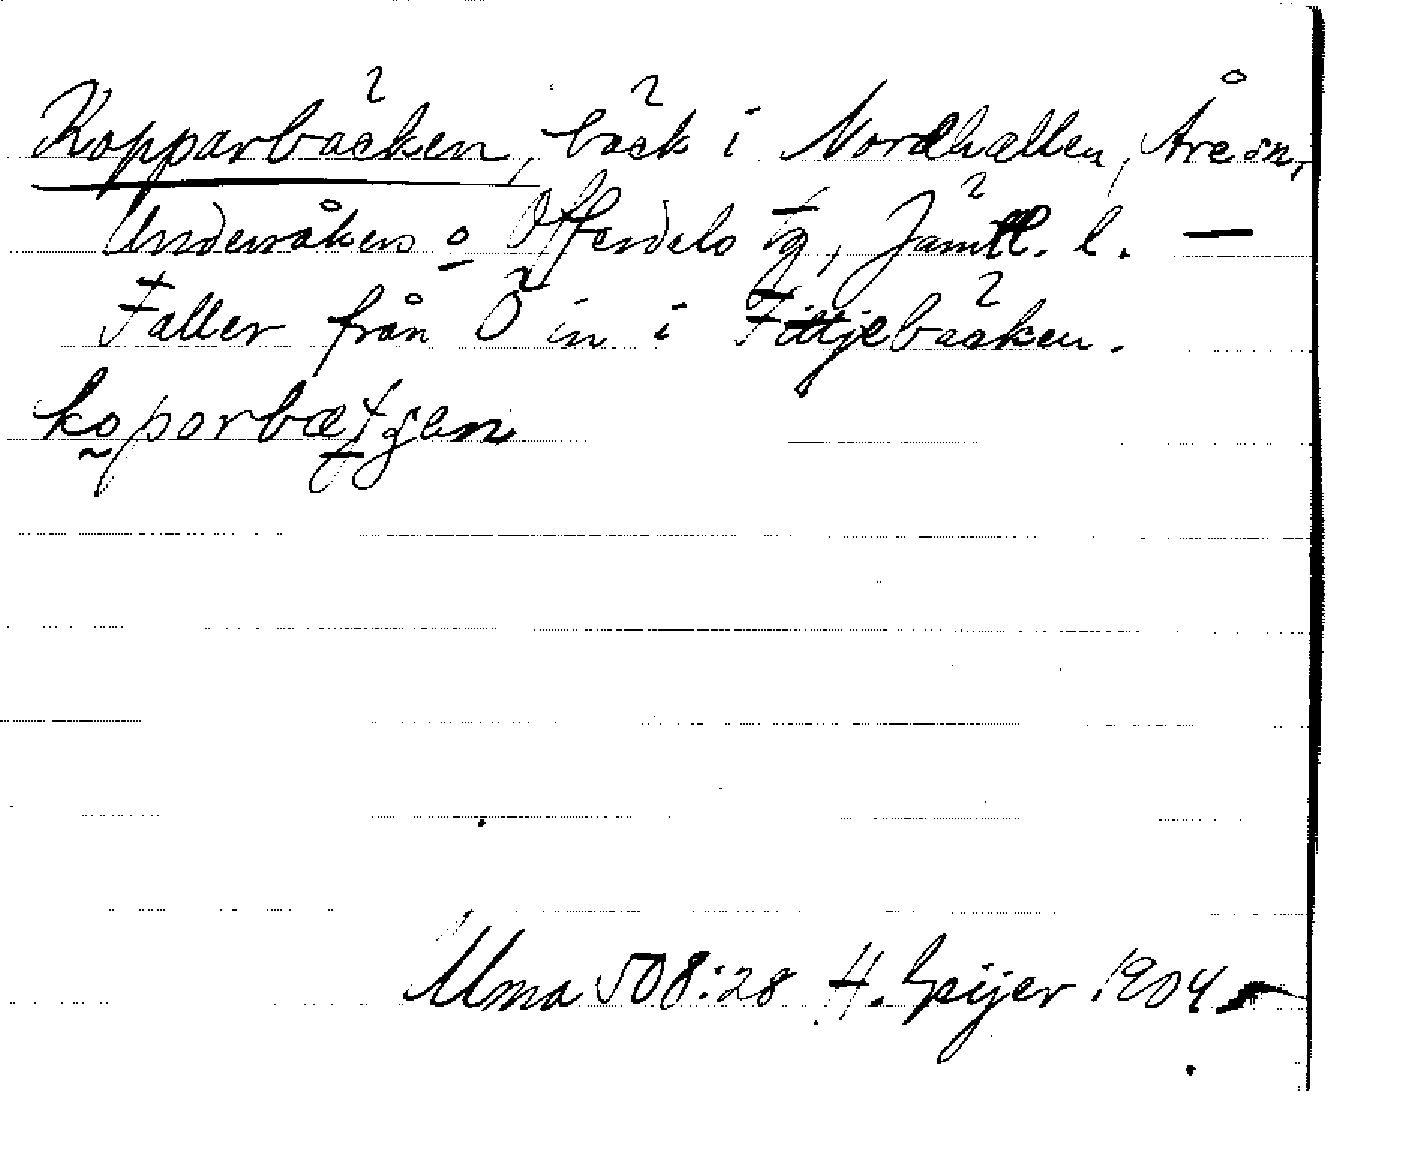 Kopparbäcken, bäck i Nordhallen, Åre sn,
Undersåkers o Offerdals tg, Jämtl. l. —
Faller från Ö in i Fittjebäcken.
Ulma 508:28 H. Geijer 1904